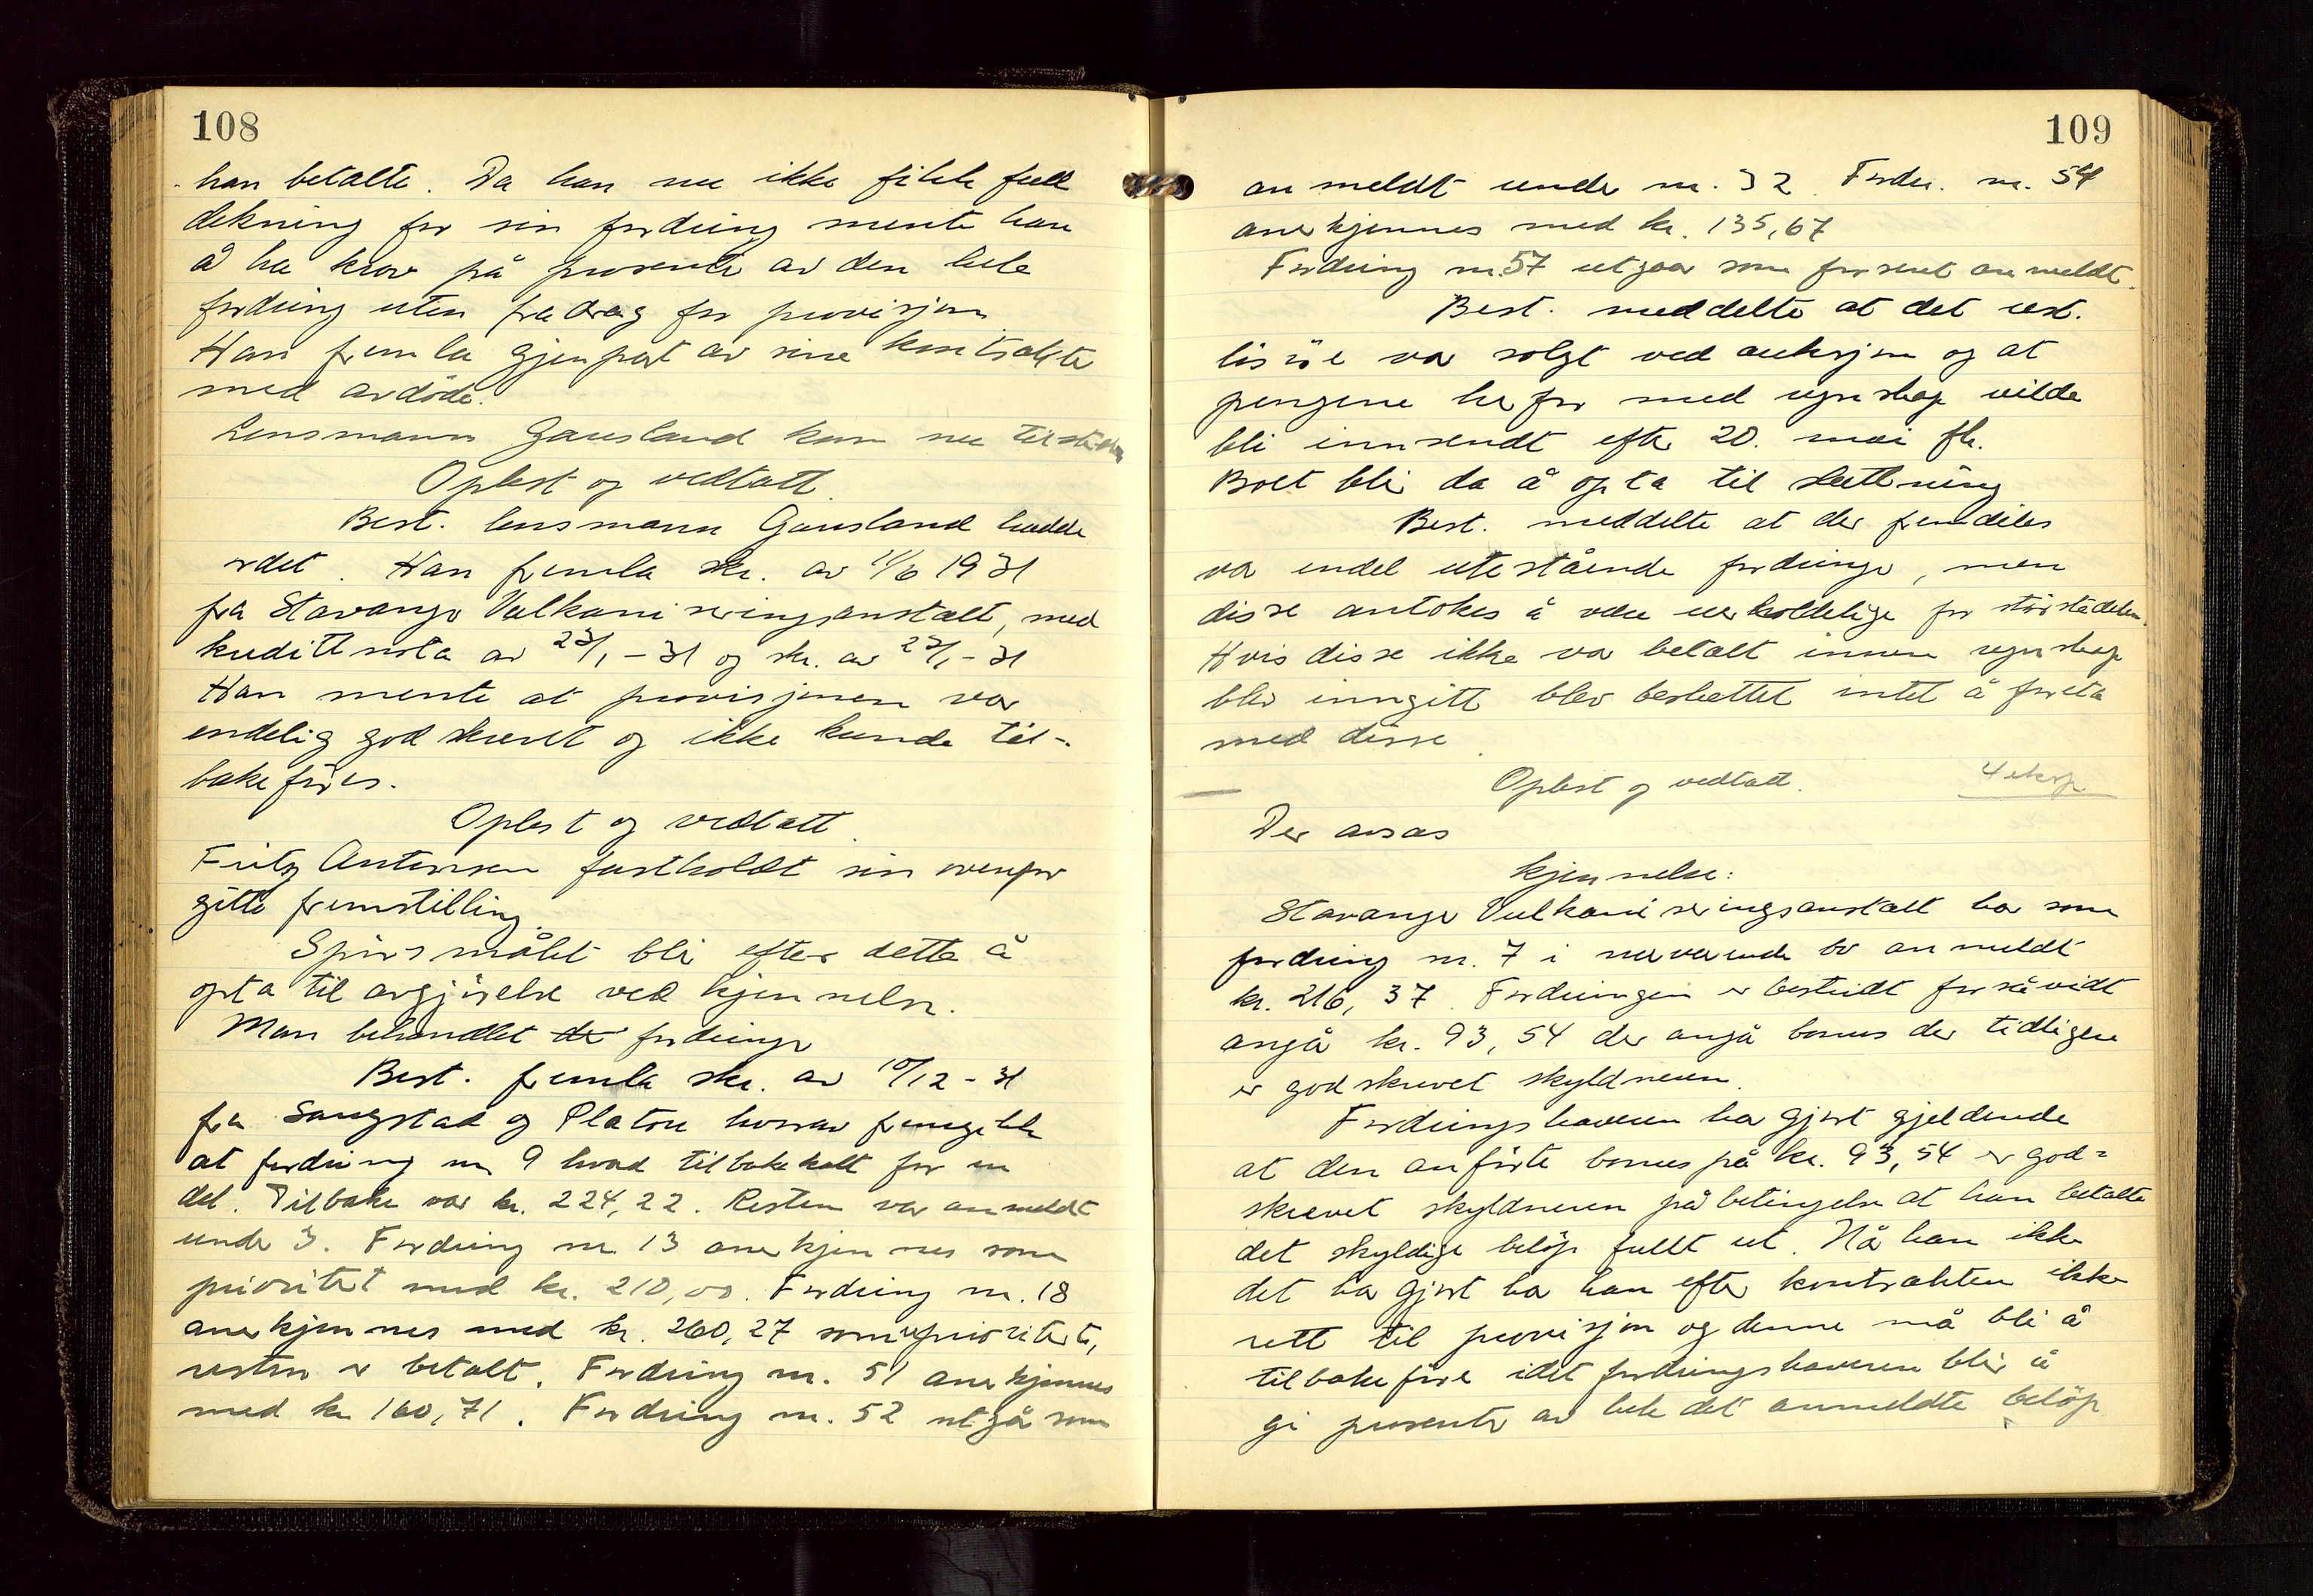 108
han betalte. Da han nu ikke fikk full
dekning for sin fordring mente han
å ha krav på prosenter av den hele
fordring uten fradrag for provisjon
Han fremla gjenpart av sine kontrakter
med avdöde.
Lensmann Gausland kom nu tilstede
Oplest og vedtatt.
Best. lensmann Gausland hadde
ordet. Han fremla skr. av 11/6 1931
fra Stavanger Vulkaniseringsanstalt, med
kreditnota av 23/1 - 31 og skr. av 23/1 - 31
Han mente at provisjonen var
endelig godskrevet og ikke kunde til-
bakeföres.
Oplest og vedtatt.
Fritz Antonsen fastholdt sin ovenfor
gitte fremstilling.
Spörsmålet blir efter dette å
opta til avgjörelse ved kjennelse.
Man behandlet de fordringer
Best. fremla skr. av 10/12 - 31
fra Sangstad og Platou hvorav fremgikk
at fordring nr 9 hvad tilbakekalt for en
del. Tilbake var kr. 224,22. Resten var anmeldt
under 3. Fordring nr. 13 anerkjennes som
prioritert med kr. 210,00. Fordring nr. 18
anerkjennes med kr. 260,27 som uprioritert,
resten er betalt. Fordring nr. 51 anerkjennes
med kr 160,71. Fordring nr. 52 utgår som
109
anmeldt under nr. 32. Fordr. nr. 54
anerkjennes med kr. 135,67
Fordring nr. 57 utgaar som for sent anmeldt.
Best. meddelte at det rest.
lösöre var solgt ved auksjon og at
pengene herfor med regnskap vilde
bli innsendt efter 20. mai fk.
Boet blir da å opta til slutning
Best. meddelte at der fremdeles
var endel utestående fordringer, men
disse antokes å være uerholdelige for störstedelen.
Hvis disse ikke var betalt innen regnskap
blev inngitt blev besluttet intet å foreta
med disse.
Oplest og vedtatt.
4 eksp
Der avsas
kjennelse:
Stavanger Vulkaniseringsanstalt har som
fordring nr. 7 i nærværende bo anmeldt
kr. 216,37. Fordringen er bestridt forsåvidt
angår kr. 93,54 der angår bonus der tidligere
er godskrevet skyldneren.
Fordringshaveren har gjort gjeldende
at den anförte bonus på kr. 93,54 er god=
skrevet skyldneren på betingelse at han betalte
det skyldige belöp fullt ut. Når han ikke
det har gjort har han efter kontrakten ikke
rett til provisjon og denne må bli å
tilbakeföre idet fordringshaveren blir å
gi prosenter av hele det anmeldte belöp